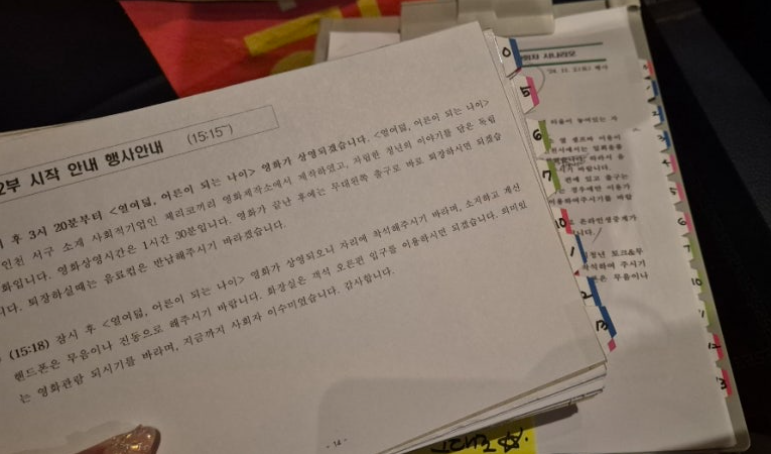 2부 시작 안내 행사안내 (15:15~)
후 3시 20분부터 <열여덟, 어른이 되는 나이> 영화가 상영되겠습니다. <열여덟, 어른이 되는 나이>
인천 서구 소재 사회적기업인 체리코끼리 영화제작소에서 제작하였고, 자립한 청년의 이야기를 담은 독립
화입니다. 영화상영시간은 1시간 30분입니다. 영화가 끝난 후에는 무대왼쪽 출구로 바로 퇴장하시면 되겠습
니다. 퇴장하실때는 음료컵은 반납해주시기 바라겠습니다.
(15:18) 잠시 후 <열여덟, 어른이 되는 나이> 영화가 상영되오니 자리에 착석해주시기 바라며, 소지하고 계신
핸드폰은 무음이나 진동으로 해주시기 바랍니다. 화장실은 객석 오른편 입구를 이용하시면 되겠습니다. 의미있
는 영화관람 되시기를 바라며, 지금까지 사회자 이수미였습니다. 감사합니다.
- 14 -
0
5
6
7
10
1
2
3
사회자 시나리오
마음이 놓여있는 자
편에 있고 출구는
경우에만 이용가
이용하여주시기를 바랍
온라인생중계가
청년 토크&무
착석하여 주시기
무음이나